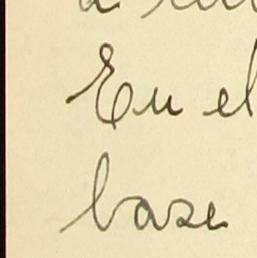 En el
base